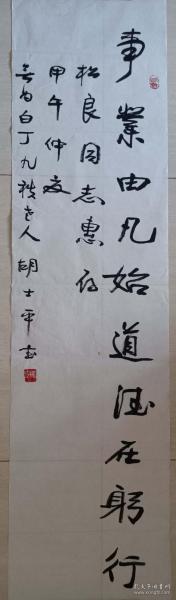 事業由凡始道德在躬行
松良同志惠存
甲午仲夏
白丁九秩老人胡士平书